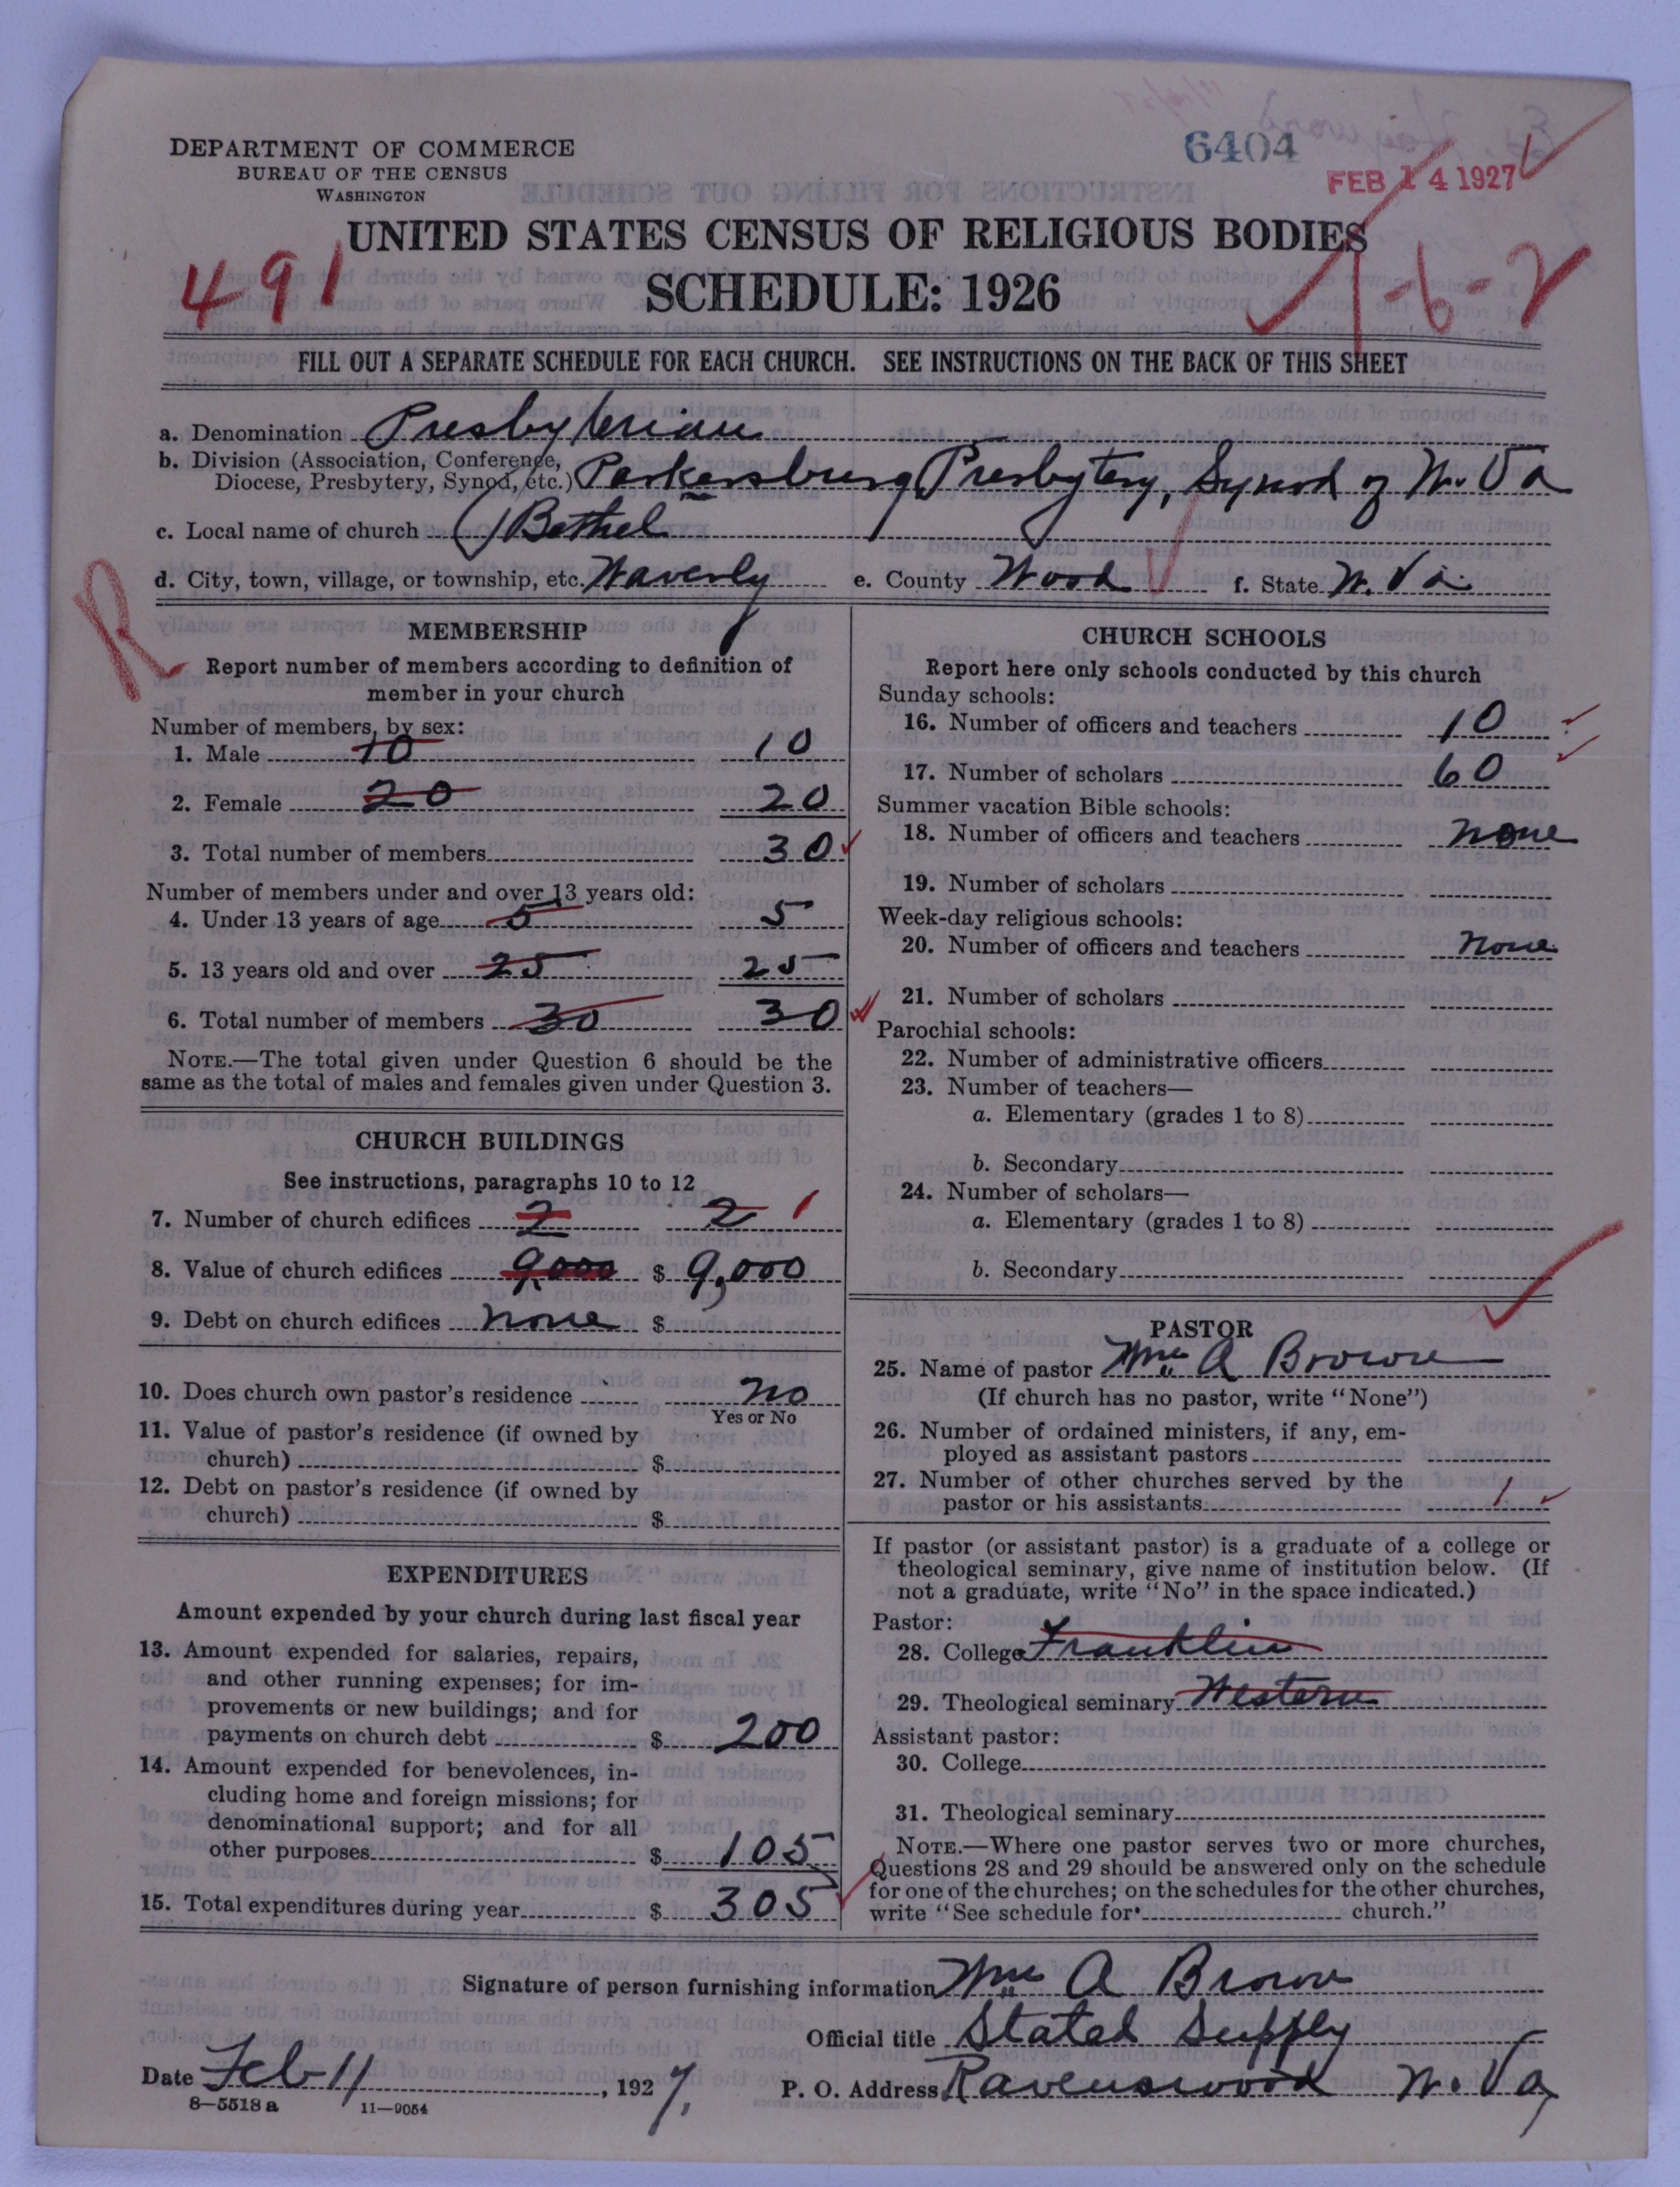 6404
FEB 14 1927
DEPARTMENT OF COMMERCE
BUREAU OF THE CENSUS
WASHINGTON
UNITED STATES CENSUS OF RELIGIOUS BODIES
SCHEDULE: 1926
491
1-6-2
FILL OUT A SEPARATE SCHEDULE FOR EACH CHURCH. SEE INSTRUCTIONS ON THE BACK OF THIS SHEET
a. Denomination Presbyterian
b. Division (Association, Conference, Diocese, Presbytery, Synod, etc.) Parkersburg Presbytery, Synod of W. Va
c. Local name of church Bethel
d. City, town, village, or township, etc. Waverly e. County Wood f. State W. Va.
R
MEMBERSHIP
Report number of members according to definition of
member in your church
Number of members, by sex:
1. Male 10 10
2. Female 20 20
3. Total number of members 30
Number of members under and over 13 years old:
4. Under 13 years of age 5 5
5. 13 years old and over 25 25
6. Total number of members 30 30
NOTE.—The total given under Question 6 should be the
same as the total of males and females given under Question 3.
CHURCH BUILDINGS
See instructions, paragraphs 10 to 12
7. Number of church edifices 2 2 1
8. Value of church edifices 9,000 $ 9,000
9. Debt on church edifices none $
10. Does church own pastor's residence no
Yes or No
11. Value of pastor's residence (if owned by
church) $
12. Debt on pastor's residence (if owned by
church) $
EXPENDITURES
Amount expended by your church during last fiscal year
13. Amount expended for salaries, repairs,
and other running expenses; for im-
provements or new buildings; and for
payments on church debt $ 200
14. Amount expended for benevolences, in-
cluding home and foreign missions; for
denominational support; and for all
other purposes $ 105
15. Total expenditures during year $ 305
CHURCH SCHOOLS
Report here only schools conducted by this church
Sunday schools:
16. Number of officers and teachers 10
17. Number of scholars 60
Summer vacation Bible schools:
18. Number of officers and teachers none
19. Number of scholars
Week-day religious schools:
20. Number of officers and teachers none
21. Number of scholars
Parochial schools:
22. Number of administrative officers
23. Number of teachers—
a. Elementary (grades 1 to 8)
b. Secondary
24. Number of scholars—
a. Elementary (grades 1 to 8)
b. Secondary
PASTOR
25. Name of pastor Wm A Brown
(If church has no pastor, write "None")
26. Number of ordained ministers, if any, em-
ployed as assistant pastors
27. Number of other churches served by the
pastor or his assistants 1
If pastor (or assistant pastor) is a graduate of a college or
theological seminary, give name of institution below. (If
not a graduate, write "No" in the space indicated.)
Pastor:
28. College Franklin
29. Theological seminary Western
Assistant pastor:
30. College
31. Theological seminary
NOTE.—Where one pastor serves two or more churches,
Questions 28 and 29 should be answered only on the schedule
for one of the churches; on the schedules for the other churches,
write "See schedule for church."
Signature of person furnishing information Wm A Brown
Official title Stated Supply
Date Feb 11, 1927. P. O. Address Ravenswood W. Va
8—5518 a 11—9054